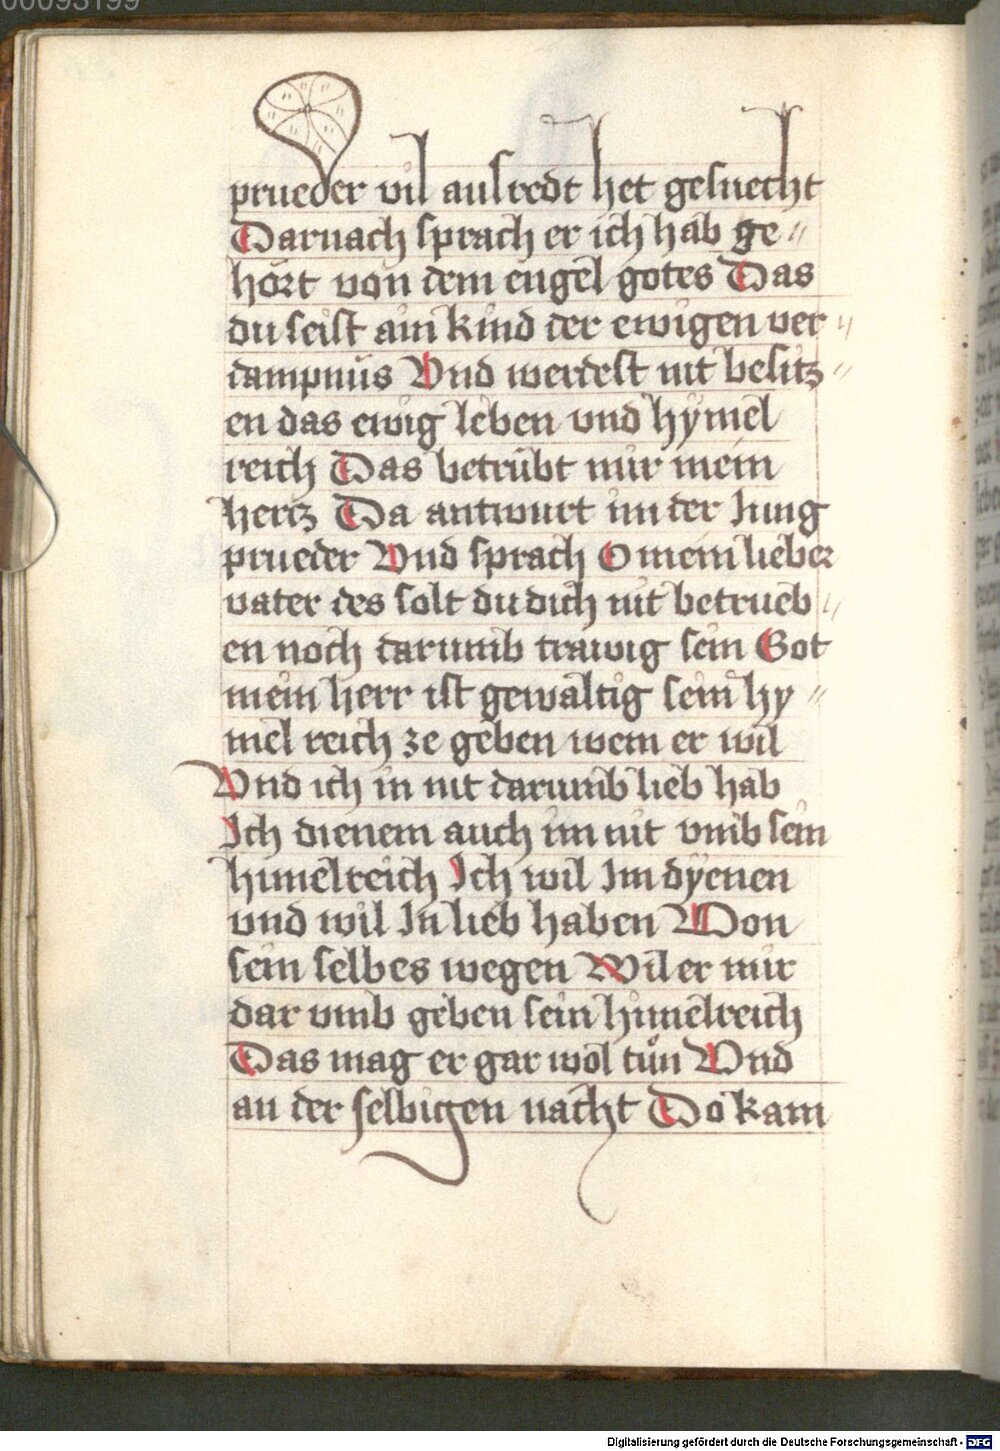 00093199
prueder vil ausredt het gesuecht
Darnach sprach er ich hab ge〃
hört von dem engel gotes Das
du seist ain kind der ewigen ver〃
dampnüs Vnd werdest nit besitz〃
en das ewig leben vnd hymel
reich Das betrübt mir mein
hertz Da antwurt im der Jung
prueder Vnd sprach O mein lieber
vater des solt du dich nit betrueb〃
en noch darumb trawig sein Got
mein herr ist gewaltig sein hy〃
mel reich ze geben wem er wil
Vnd ich in nit darumb lieb hab
Ich dienem auch im nit vmb sein
himelreich Ich wil Im dyenen
vnd wil In lieb haben Von
sein selbes wegen Wil er mir
dar vmb geben sein himelreich
Das mag er gar wol tůn Vnd
an der selbigen nacht Do kam
Digitalisierung gefördert durch die Deutsche Forschungsgemeinschaft - DFG